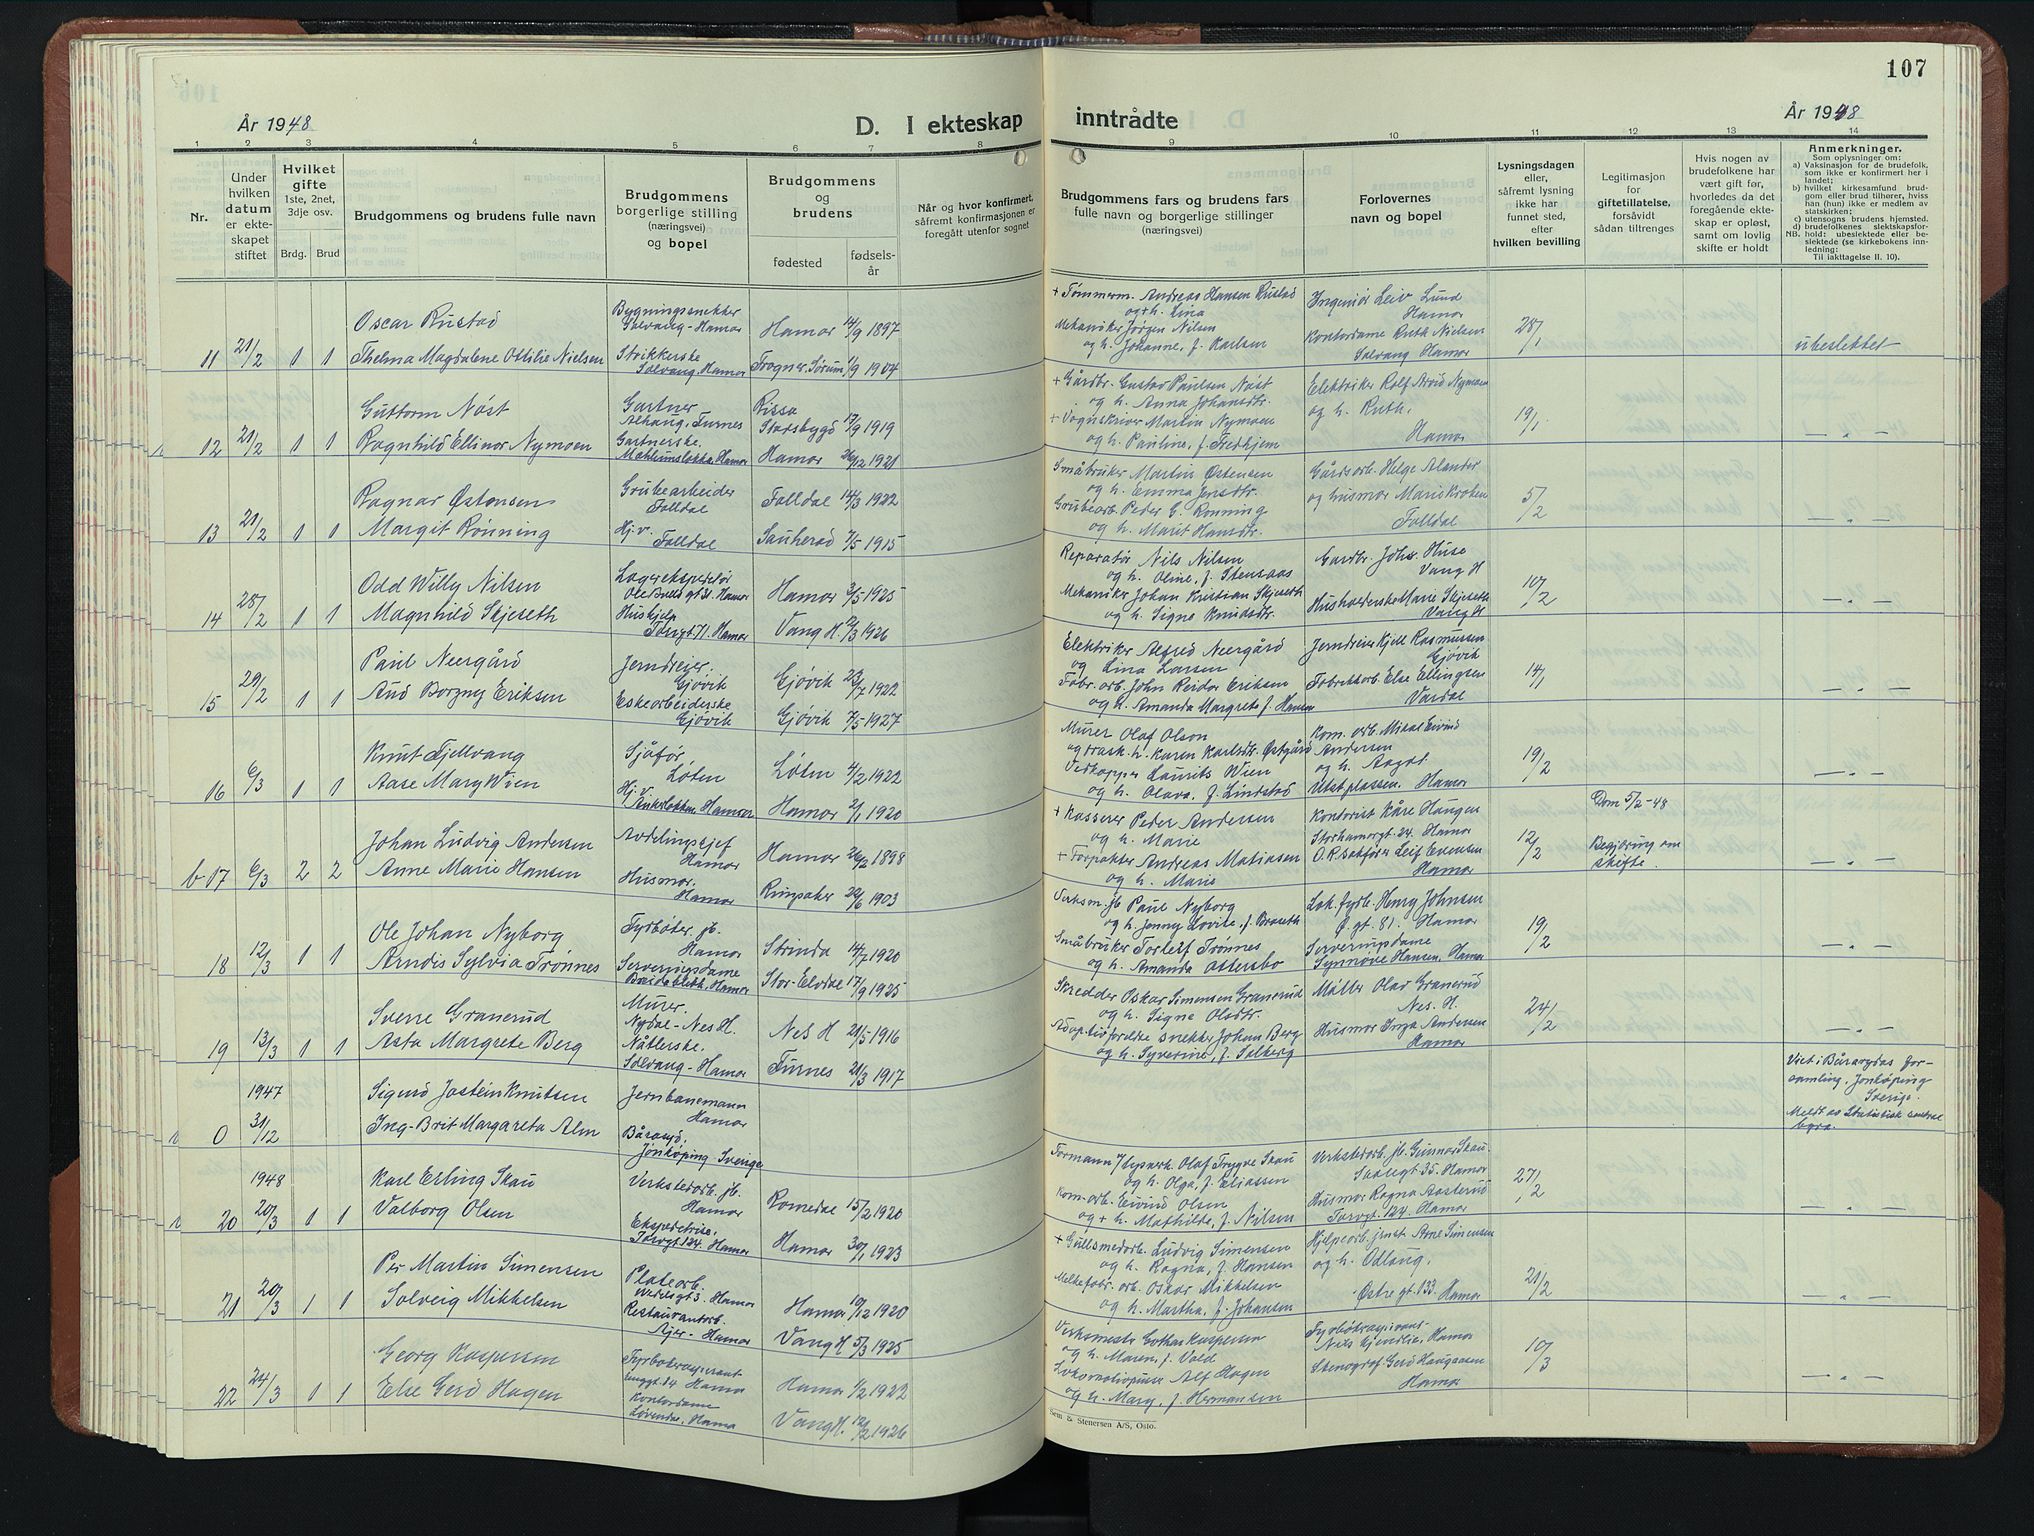 107
År 1948
D. I ekteskap
inntrådte
År 1948
1 2 3 4 5 6 7 8 9 10 11 12 13 14
Nr.
Under
hvilken
datum
er ekte-
skapet
stiftet
Hvilket
gifte
1ste, 2net,
3dje osv.
Brdg. Brud
Brudgommens og brudens fulle navn
Brudgommens
borgerlige stilling
(næringsvei)
og bopel
Brudgommens
og
brudens
fødested
fødsels-
år
Når og hvor konfirmert,
såfremt konfirmasjonen er
foregått utenfor sognet
Brudgommens fars og brudens fars
fulle navn og borgerlige stillinger
(næringsvei)
Forlovernes
navn og bopel
Lysningsdagen
eller,
såfremt lysning
ikke har
funnet sted,
efter
hvilken bevilling
Legitimasjon
for
giftetillatelse,
forsåvidt
sådan tiltrenges
Hvis nogen av
brudefolkene har
vært gift før,
hvorledes da det
foregående ekte-
skap er opløst,
samt om lovlig
skifte er holdt
Anmerkninger.
Som oplysninger om:
a) Vaksinasjon for de brudefolk,
som ikke er konfirmert her i
landet;
b) hvilket kirkesamfund brud-
gom eller brud tilhører, hviss
han (hun) ikke er medlem av
statskirken;
c) utensogns brudens hjemsted.
d) brudefolkenes slektskapsfor-
NB. hold: ubeslektede eller be-
slektede (se kirkebokens inn-
ledning:
Til iakttagelse II. 10).
11 21/2 1 1
Oscar Rustad
Thelma Magdalene Ottilie Nielsen
Bygningssnekker
Solvang - Hamar
Strikkerske
Solvang. Hamar
Hamar 14/9 1897
Frogner, Sørum 1/9 1904
+ Tømmerm. Andreas Hansen Rustad
og + h. Lina
Mekaniker Jørgen Nilsen
og h. Johanne, f. Karlsen
Ingeniør Leiv Lund
Hamar
Kontordame Ruth Nielsen
Solvang Hamar
28/1
ubeslektet
12 21/2 1 1
Guttorm Nøst
Ragnhild Ellinor Nymoen
Gartner
Alhaug, Furnes
Gartnerske.
Mæhlumsløkka, Hamar
Rissa
Stadsbygd 17/9 1919
Hamar 26/2 1921
+ Gårdbr. Gustav Paulsen Nøst
og h. Anna Johansdtr.
+ Vognskriver Martin Nymoen
og h. Pauline, f. Fredhjem
Elektriker Rolf Arvid Nymoen
og h. Ruth,
Hamar
19/1
— „ —
13 21/2 1 1
Ragnar Østensen
Margit Rønning
Grubearbeider
Folldal
Hj. v.
Folldal
Folldal 14/3 1922
Sauherad 7/5 1915
Småbruker Martin Østensen
og h. Emma Jensdtr.
Grubearb. Peder G. Rønning
og h. Marit Hansdtr.
Gårdsarb. Helge Alander
og husmor Marie Kroken
Folldal
5/2
— „ —
14 28/2 1 1
Odd Willy Nilsen
Magnhild Skjeseth
Lagerekspeditør
Ole Bulls gt 31. Hamar
Hushjelp
Torvgt. 71. Hamar
Hamar 3/5 1925
Vang H. 12/3 1926
Reparatør Nils Nilsen
og h. Oline, f. Stensaas
Mekaniker Johan Kristian Skjeseth
og h. Signe Knudsdtr.
Gardbr. Johs. Huse
Vang H
Husholderske Marie Skjeseth
Vang H
10/2
— „ —
15 29/2 1 1
Paul Neergård
Aud Borgny Eriksen
Jerndreier.
Gjøvik
Eskearbeiderske
Gjøvik
Gjøvik 23/7 1922
Gjøvik 7/5 1927
Elektriker Alfred Neergård
og Lina Larsen
Fabr. arb. John Reidar Eriksen
og h. Amanda Margrete f. Hansen
Jerndreier Kjell Rasmussen
Gjøvik
Fabrikkarb. Else Ellingsen
Vardal
14/1
— „ —
16 6/3 1 1
Knut Fjellvang
Aase Mary Wien
Sjåfør,
Løten
Hj. v.
Ankerløkka, Hamar
Løten 4/2 1922
Hamar 2/1 1920
Murer Olaf Olson
og frask. h. Karen Karlsdtr. Østgård
Vedkapper Laurits Wien
og h. Olava, f. Lindstad
Kom. arb. Mikal Eivind
Andersen
og h. Aagot
Utst.plassen. Hamar
19/2
— „ —
b 17 6/3 2 2
Johan Ludvig Andersen
Anne Marie Hansen
Avdelingsjef
Hamar
Husmor.
Hamar
Hamar 26/2 1898
Ringsaker 29/6 1903
+ Kasserer Peder Andersen
og h. Marie
+ Forpakter Andreas Matiasen
og h. Marie
Kontorist Kåre Haugen
Storhamargt. 24. Hamar
O.R.sakfører Leif Evensen
Hamar
12/2
Dom 5/2 - 48
Begjæring om
skifte.
— „ —
18 12/3 1 1
Ole Johan Nyborg
Arndis Sylvia Trønnes
Fyrbøter. jb.
Hamar
Serveringsdame
Hamar
Strinda 14/7 1920
Stor-Elvdal 17/9 1925
Verksm. jb Paul Nyborg
og h. Jenny Lovise, f. Braseth
Småbruker Torleif Trønnes
og h. Amanda Ottersbo
Lok. fyrb. Henry Johnsen
Ø. gt. 81. Hamar
Serveringsdame
Synnøve Hansen, Hamar
19/2
— „ —
19 13/3 1 1
Sverre Granerud
Asta Margrete Berg
Murer.
Nydal - Nes H.
Nåtlerske.
Solvang - Hamar
Nes H 21/5 1916
Furnes 21/3 1917
Skredder Oskar Simensen Granerud
og h. Signe Olsdtr.
Adoptivforeldre snekker Johan Berg
og h. Syverine, f. Solberg
Møller Olav Granerud
Nes. H.
Husmor Inga Andersen
Hamar
24/2
— „ —
1947
0 31/12
Sigurd Jostein Knutsen
Ing-Brit Margareta Alm
Jernbanemann
Hamar
Båraryd,
Jønkøping - Sverige
Viet i Båraryds for-
samling, Jonkøping
Sverige.
Meldt av Statistisk sentral
byrå.
1948
20 20/3 1 1
Karl Erling Skau
Valborg Olsen
Verkstedarb. jb.
Hamar
Ekspeditrise,
Torvgt. 124. Hamar
Romedal 15/2 1920
Hamar 30/1 1923
Formann v/lysverk. Olaf Trygve Skau
og h. Olga, f. Eliassen
Kom. arb. Eivind Olsen
og + h. Mathilde, f. Nilsen
Verkstedarb. jb. Gunnar Skau.
35. Hamar
Husmor Ragna Aasterud
Torvgt. 124. Hamar
27/2
— „ —
21 20/3 1 1
Per Martin Simensen
Solveig Mikkelsen
Platearb.
3. Hamar
Restaurantarb.
Ajer - Hamar
Hamar 10/12 1920
Vang H 5/3 1925
+ Gullsmedarb. Ludvig Simensen
og h. Ragna, f. Hansen
Melkefabr. arb. Oskar Mikkelsen
og h. Martha, f. Johansen
Hjelpearb. jernst. Arne Simensen
og h. Odlaug,
Østre gt. 133. Hamar
21/2
— „ —
22 24/3 1 1
Georg Kaspersen
Else Gerd Hagen
Fyrbøteraspirant
Hamar
Kontordame
Løvendal, Hamar
Hamar 1/2 1922
Vang H. 12/2 1926
Verksmester Kaspersen
og h. Maren, f. Vold
Lokomotivpusser Alf Hagen
og h. Mary, f. Hermansen
Fyrbøteraspirant
Nils Gjendlie, Hamar
Stenograf Gerd Haugaasen
Hamar
10/3
— „ —
Sem & Stenersen A/S, Oslo.